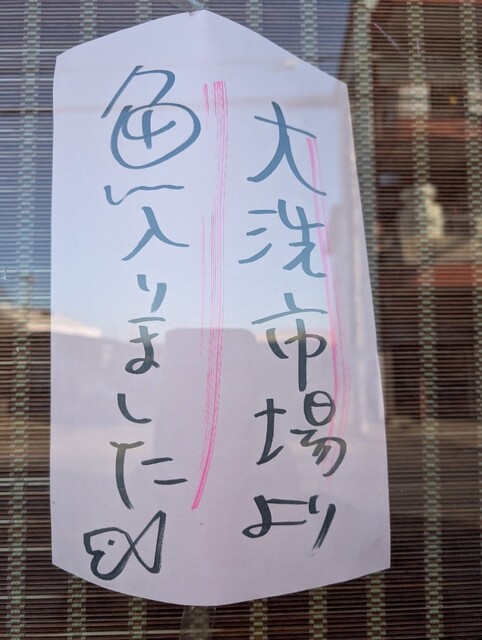 大洗市場より
魚入りました